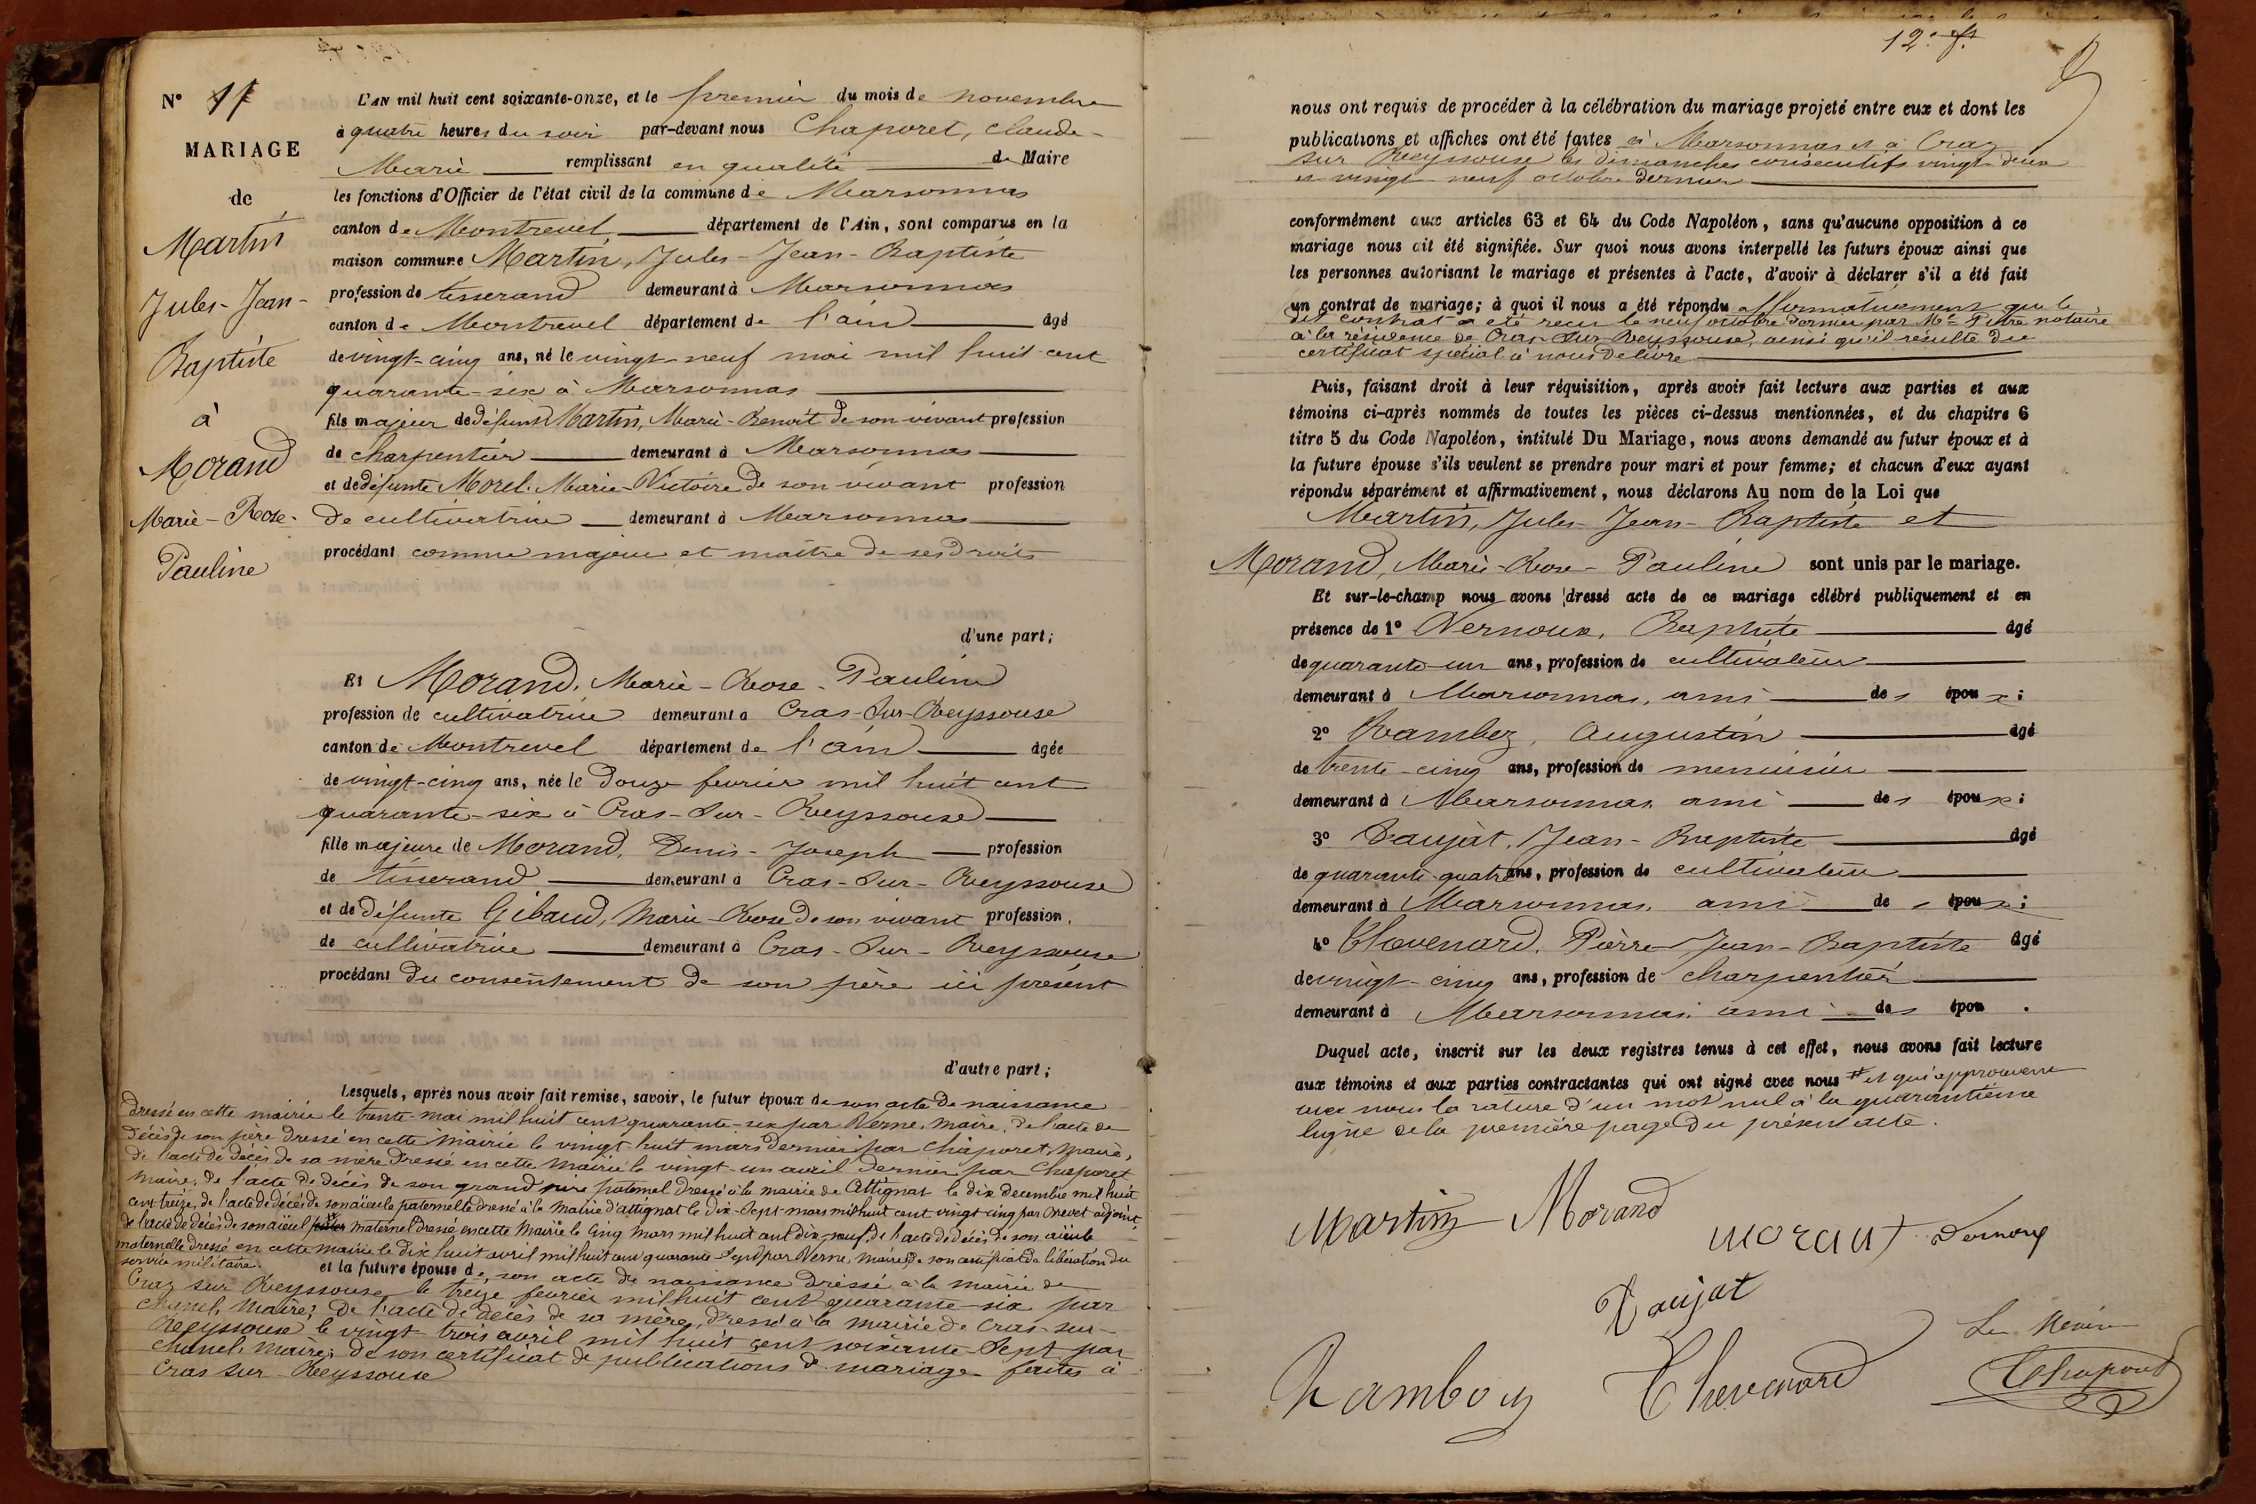 N° 11
MARIAGE
de
Martin
Jules-Jean-
Baptiste
à
Morand
Marie-Rose-
Pauline
L'AN mil huit cent soixante-onze, et le premier du mois de novembre
à quatre heures du soir par-devant nous Chaporet, Claude-
Marie remplissant en qualité de Maire
les fonctions d'Officier de l'état civil de la commune de Marsonnas
canton de Montrevel département de l'Ain, sont comparus en la
maison commune Martin, Jules-Jean-Baptiste
profession de tisserand demeurant à Marsonnas
canton de Montrevel département de l'ain âgé
de vingt-cinq ans, né le vingt-neuf mai mil huit cent
quarante-six à Marsonnas
fils majeur de défunt Martin, Marie-Benoit de son vivant profession
de charpentier demeurant à Marsonnas
et de défunte Morel, Marie-Victoire de son vivant profession
de cultivatrice demeurant à Marsonnas
procédant comme majeur et maître de ses droits
d'une part;
Et Morand, Marie-Rose-Pauline
profession de cultivatrice demeurant à Cras-Sur-Reyssouse
canton de Montrevel département de l'ain âgée
de vingt-cinq ans, née le douze fevrier mil huit cent
quarante-six à Cras-Sur-Reyssouse
fille majeure de Morand, Denis-Joseph profession
de tisserand demeurant à Cras-Sur-Reyssouse
et de défunte Gibaud, Marie-Rose de son vivant profession
de cultivatrice demeurant à Cras-Sur-Reyssouse
procédant du consentement de son père ici présent
d'autre part;
Lesquels, après nous avoir fait remise, savoir, le futur époux de son acte de naissance
dressé en cette mairie le trente mai mil huit cent quarante-six par Verne, maire, de l'acte de
décès de son père dressé en cette mairie le vingt huit mars dernier par Chaporet, maire,
de l'acte de décès de sa mère dressé en cette mairie le vingt-un avril dernier par Chaporet
maire, de l'acte de décès de son grand père paternel dressé à la mairie de Attignat le dix decembre mil huit
cent treize, de l'acte de décès de son aïeule paternelle dressé à la Mairie d'attignat le dix-sept mars mil huit cent vingt cinq par Brevet adjoint,
de l'acte de décès de son aïeul maternel dressé en cette Mairie le cinq mars mil huit cent dix-neuf, de l'acte de décès de son aïeule
maternelle dressé en cette mairie le dix huit avril mil huit cent quarante-sept par Verne, maire, de son certificat de libération du
service militaire. et la future épouse de, son acte de naissance dressé à la mairie de
Cras sur Reyssouse le treize fevrier mil huit cent quarante-six par
Chanel, Maire; de l'acte de décès de sa mère, dressé à la mairie de Cras-sur-
Reyssouse le vingt trois avril mil huit cent soixante-Sept par
Chanel, Maire; de son certificat de publications de mariage faites à
Cras sur Reyssouse
12e f.
nous ont requis de procéder à la célébration du mariage projeté entre eux et dont les
publications et affiches ont été faites à Marsonnas et à Cras
sur Reyssouse les dimanches consécutifs vingt-deux
et vingt-neuf octobre dernier
conformément aux articles 63 et 64 du Code Napoléon, sans qu'aucune opposition à ce
mariage nous ait été signifiée. Sur quoi nous avons interpellé les futurs époux ainsi que
les personnes autorisant le mariage et présentes à l'acte, d'avoir à déclarer s'il a été fait
un contrat de mariage; à quoi il nous a été répondu affirmativement que le
dit contrat a été reçu le neuf octobre dernier par Me notaire
à la résidence de Cras-Sur-Reyssouse, ainsi qu'il résulte du
certificat spécial à nous délivré
Puis, faisant droit à leur réquisition, après avoir fait lecture aux parties et aux
témoins ci-après nommés de toutes les pièces ci-dessus mentionnées, et du chapitre 6
titre 5 du Code Napoléon, intitulé Du Mariage, nous avons demandé au futur époux et à
la future épouse s'ils veulent se prendre pour mari et pour femme; et chacun d'eux ayant
répondu séparément et affirmativement, nous déclarons Au nom de la Loi que
Martin, Jules-Jean-Baptiste et
Morand, Marie-Rose-Pauline sont unis par le mariage.
Et sur-le-champ nous avons dressé acte de ce mariage célébré publiquement et en
présence de 1° Vernoux, Baptiste âgé
de quarante-un ans, profession de cultivateur
demeurant à Marsonnas, ami des époux;
2° Rambez, Augustin âgé
de trente-cinq ans, profession de menuisier
demeurant à Marsonnas, ami des époux;
3° Daujat, Jean-Baptiste âgé
de quarante-quatre ans, profession de cultivateur
demeurant à Marsonnas, ami des époux;
4° Thevenard, Pierre Jean-Baptiste âgé
de vingt-cinq ans, profession de charpentier
demeurant à Marsonnas, ami des épou .
Duquel acte, inscrit sur les deux registres tenus à cet effet, nous avons fait lecture
aux témoins et aux parties contractantes qui ont signé avec nous # et qui approuvent
avec nous la rature d'un mot nul à la quarantième
ligne de la première page du présent acte.
Martin Morand morand Vernoux
Daujat
Le Maire
Ramboz Thevenard Chaporet